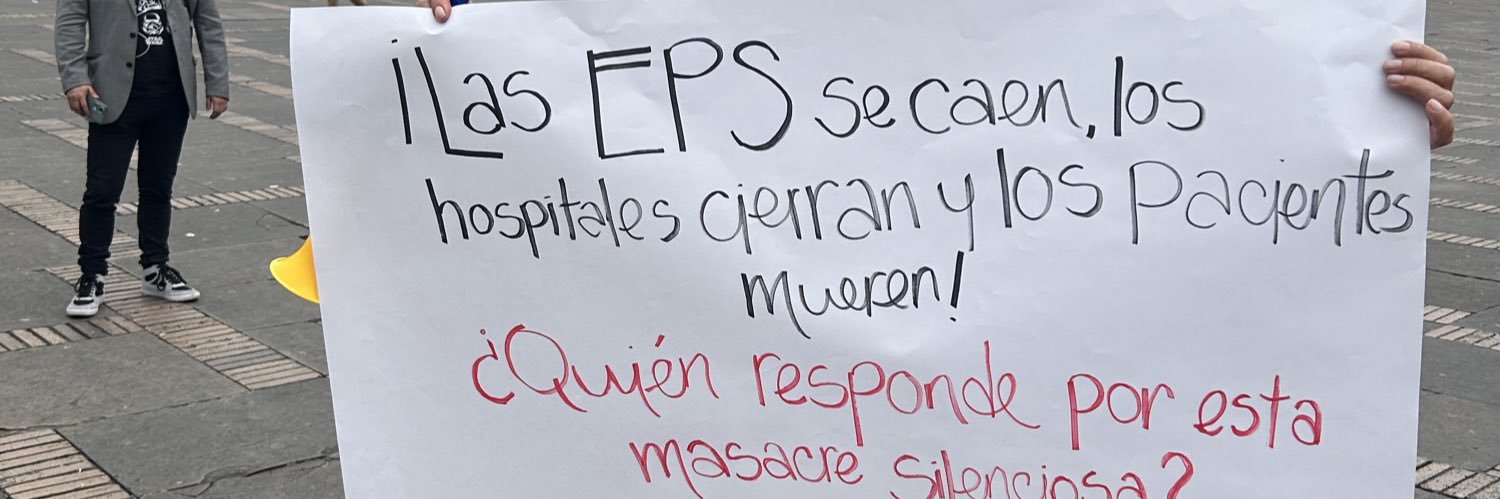 ¡Las EPS se caen, los
hospitales cierran y los pacientes
mueren!
¿Quién responde por esta
masacre silenciosa?